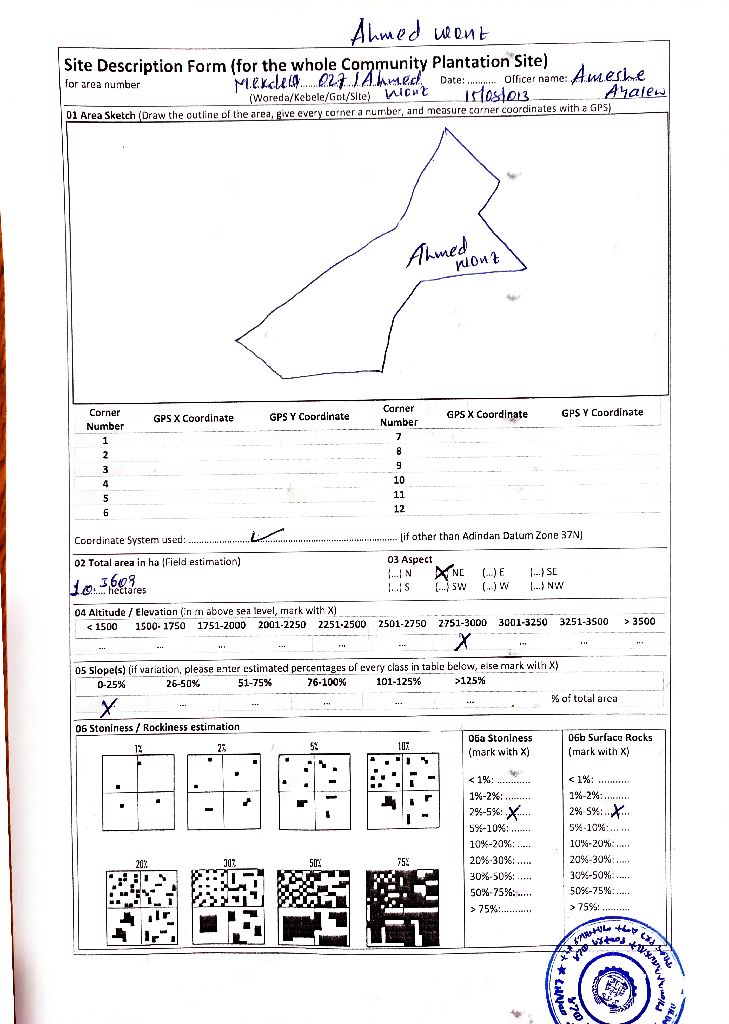 Ahmed wont
Site Description Form (for the whole Community Plantation Site)
for area number Mekdela 027 / Ahmed wont Date: .......... Officer name: Ameshe Ayalew
(Woreda/Kebele/Got/Site) 15/05/013
01 Area Sketch (Draw the outline of the area, give every corner a number, and measure corner coordinates with a GPS)
Ahmed
wont
Corner Number GPS X Coordinate GPS Y Coordinate Corner Number GPS X Coordinate GPS Y Coordinate
1 7
2 8
3 9
4 10
5 11
6 12
Coordinate System used: .......... (if other than Adindan Datum Zone 37N)
02 Total area in ha (Field estimation) 03 Aspect
10.3609 hectares
(...) N X NE (...) E (...) SE
(...) S (...) SW (...) W (...) NW
04 Altitude / Elevation (in m above sea level, mark with X)
< 1500 1500-1750 1751-2000 2001-2250 2251-2500 2501-2750 2751-3000 3001-3250 3251-3500 > 3500
... ... ... ... ... ... X ... ... ...
05 Slope(s) (if variation, please enter estimated percentages of every class in table below, else mark with X)
0-25% 26-50% 51-75% 76-100% 101-125% >125%
X ... ... ... ... ... % of total area
06 Stoniness / Rockiness estimation
1% 2% 5% 10%
20% 30% 50% 75%
06a Stoniness
(mark with X)
< 1%: ..........
1%-2%: .......
2%-5%: X
5%-10%: ......
10%-20%: .....
20%-30%: .....
30%-50%: .....
50%-75%: .....
> 75%: ..........
06b Surface Rocks
(mark with X)
< 1%: ..........
1%-2%: .......
2%-5%: X
5%-10%: ......
10%-20%: .....
20%-30%: .....
30%-50%: .....
50%-75%: .....
> 75%: ..........